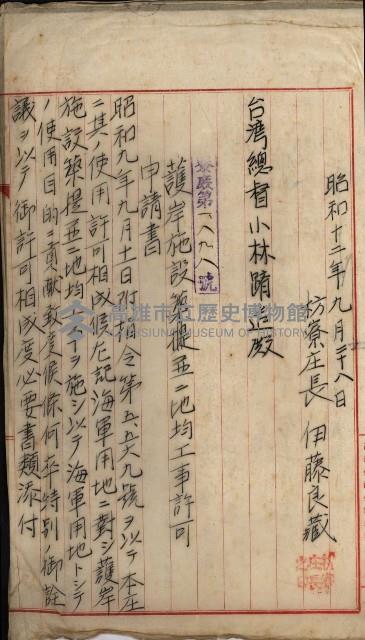 昭和十二年九月二十八日
枋寮庄長 伊藤良藏
台湾總督小林躋造殿
第一八九八號
護岸施設築堤並ニ地均工事許可
申請書
昭和九年九月十一日附指令第五五六九號ヲ以テ本庄
ニ其ノ使用許可相成候左記海軍用地ニ對シ護岸
施設築堤並ニ地均工事ヲ施シ以テ海軍用地トシテ
ノ使用目的ニ貢献致度候條何卒特別ノ御詮
議ヲ以テ御許可相成度必要書類添付
高雄市立歷史博物館
KAOHSIUNG MUSEUM OF HISTORY